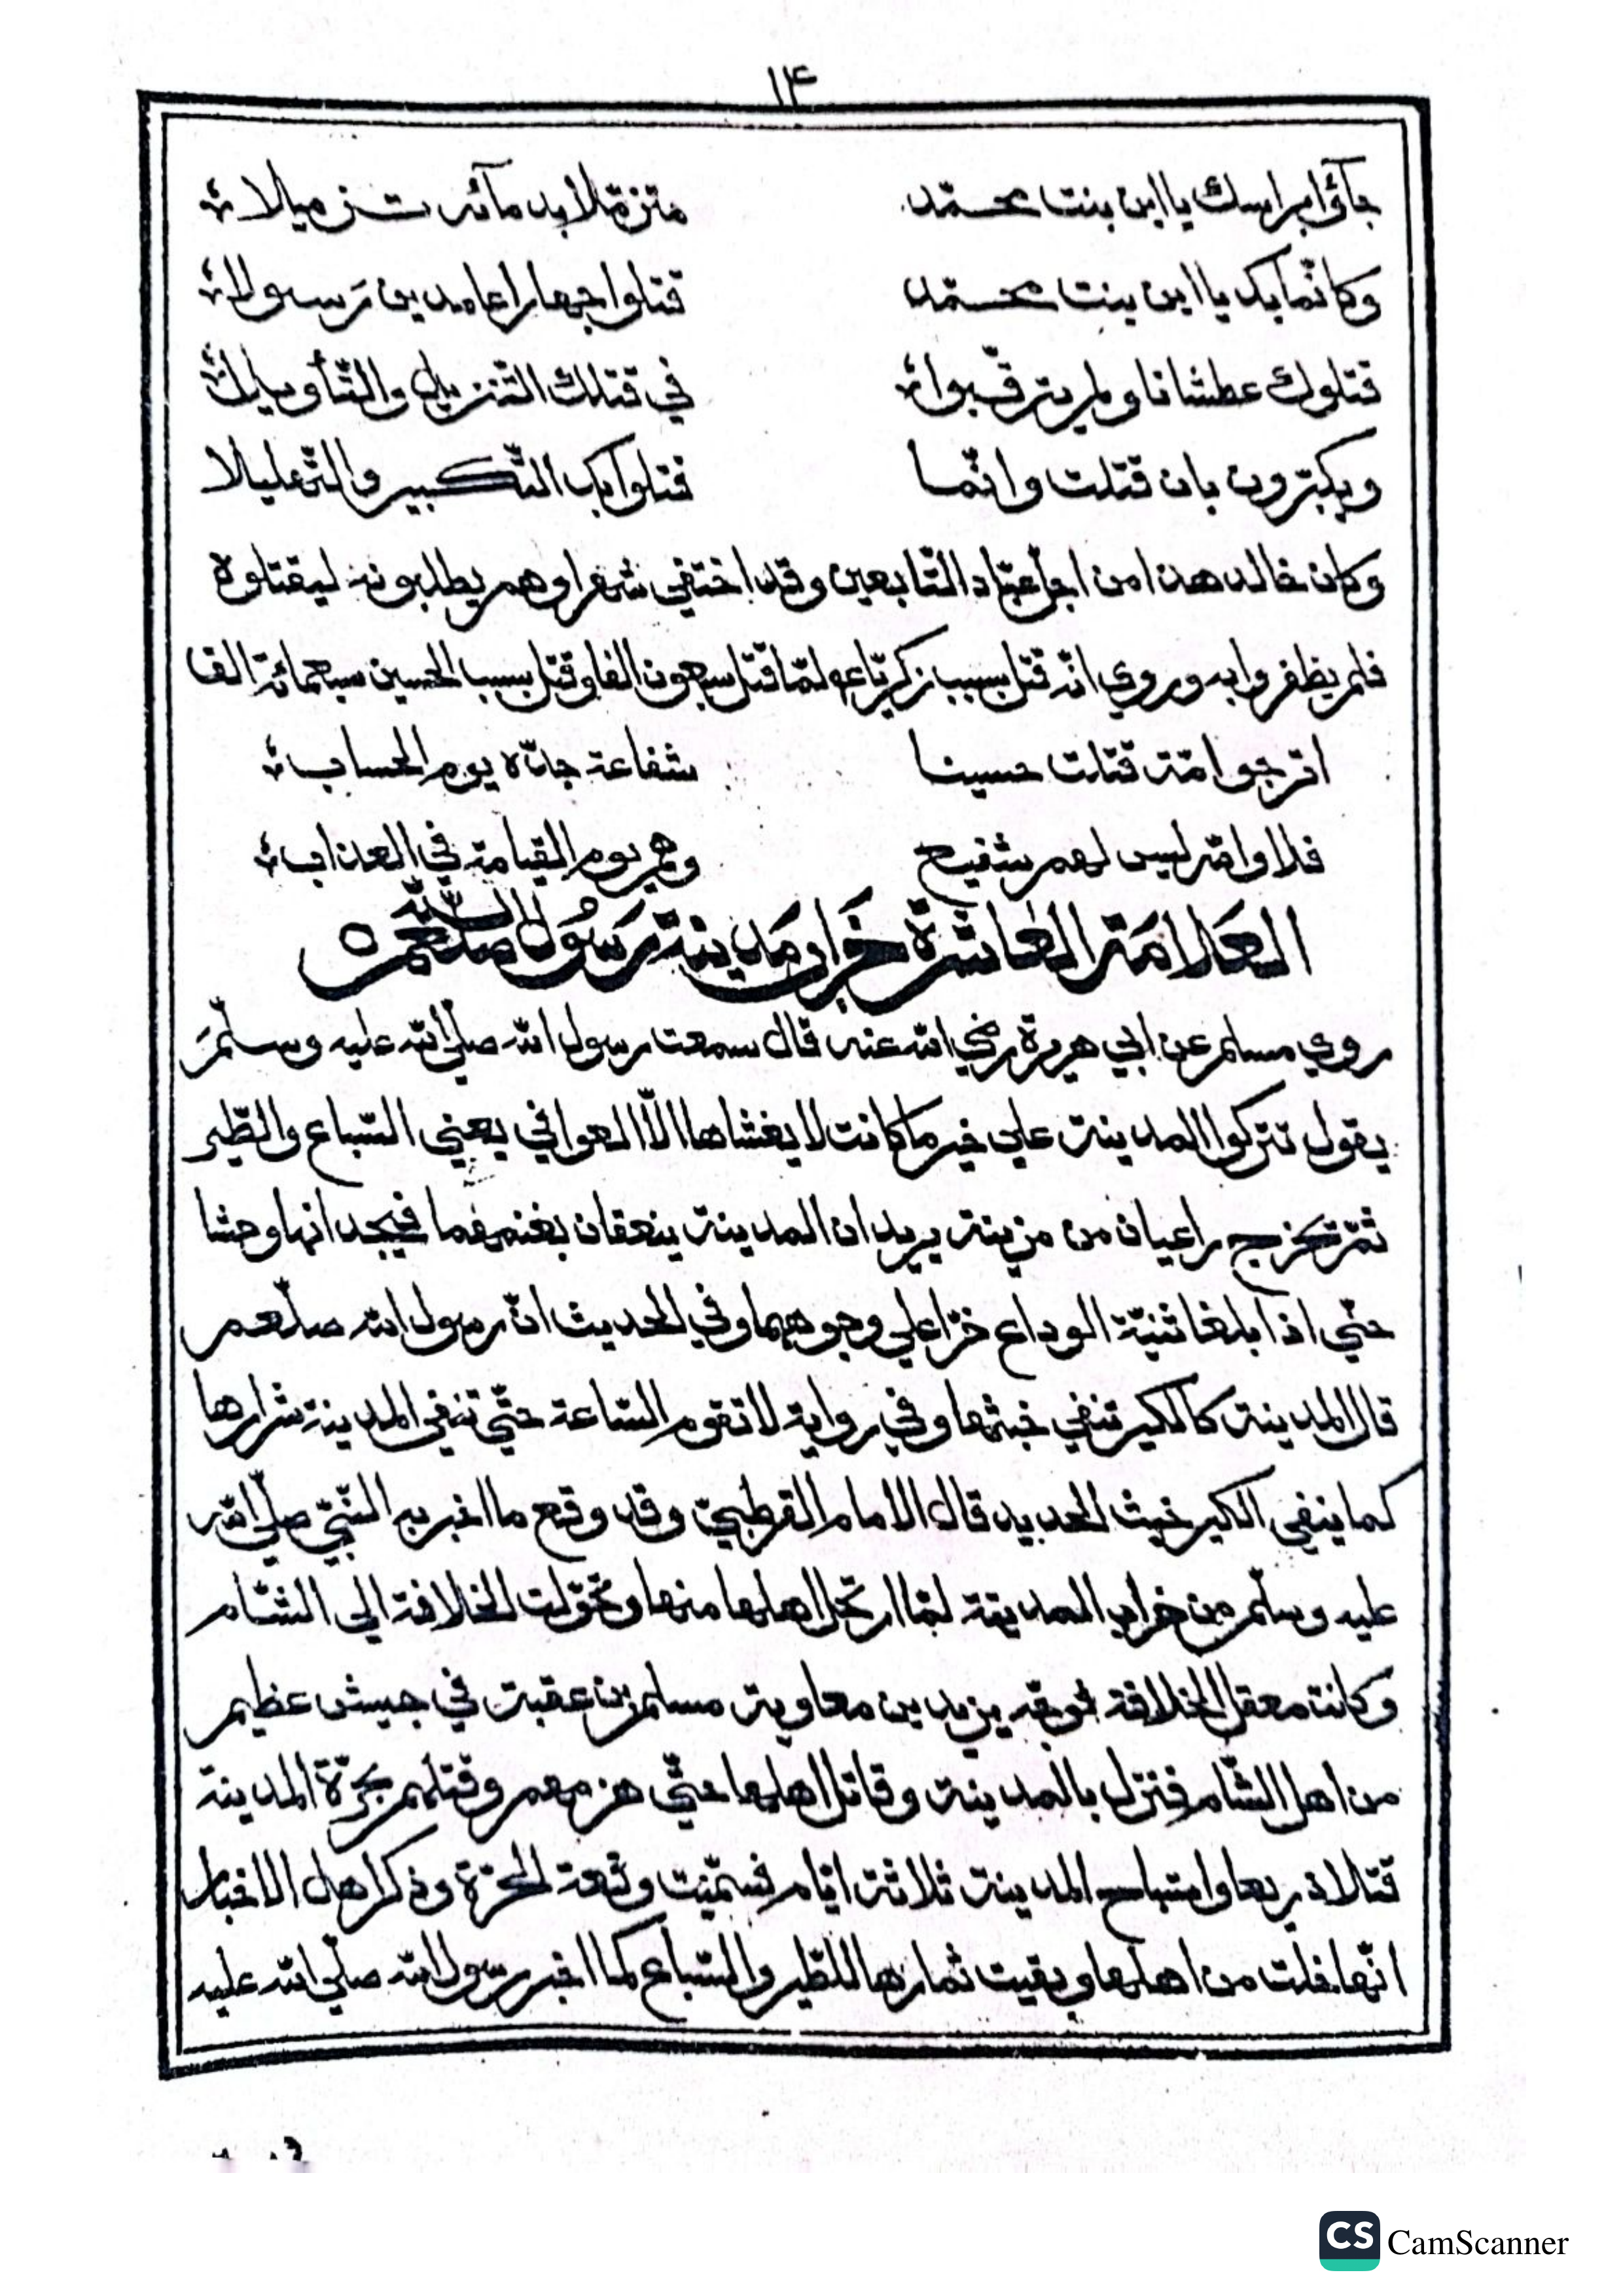 ١٤
جآؤا براسك ياابن بنت محمّد متزمّلا بدمآئه تزميلا
وكانّما بك ياابن بنت محمّد قتلوا جهارا عامدين رَسولا
قتلوك عطشانا ولم يترقّبوا في قتلك التنزيل والتّأويلا
ويكبّرون بان قتلت وانّما قتلوا بك التّكبير والتّهليلا
وكان خالد هذا من اجلّ عبّاد التّابعين وقد اختفي شهرا وهم يطلبونه ليقتلوه
فلم يظفروا به وروي انّه قتل بسبب زكريّا عم لمّا قتل سبعون الفا وقتل بسبب الحسين سبعمائة الف
اترجوا امّة قتلت حسينا شفاعة جدّه يوم الحساب
فلا والله ليس لهم شفيع وهم يوم القيامة في العذاب
العَلامَة العاشرة خَراب مَدينة رَسُول اللّه صلعم
روي مسلم عن ابي هريرة رضي الله عنه قال سمعت رسول الله صلّي الله عليه وسلّمَ
يقول تتركوا المدينة علي خير ما كانت لا يغشاها الّا العوافي يعني السّباع والطّير
ثمّ تخرج راعيان من مزينة يريدان المدينة ينعقان بغنمهما فيجدانها وحشا
حتّي اذا بلغا ثنيّة الوداع خرّا علي وجوههما وفي الحديث انّ رسول الله صلّعم
قال المدينة كالكير تنفي خبثها وفي رواية لا تقوم السّاعة حتّي تنفي المدينة شرارها
كما ينفي الكير خبث الحديد قال الامام القرطبيّ وقد وقع ما اخبر به النّبيّ صلّي الله
عليه وسلّم من خراب المدينة لمّا ارتحل اهلها منها وتحوّلت الخلافة الي الشّام
وكانت معقل الخلافة فوجّه يزيد بن معاوية مسلم بن عقبة في جيش عظيم
من اهل الشّام فنزل بالمدينة وقاتل اهلها حتّي هزمهم وقتلهم بحرّة المدينة
قتلا ذريعا واستباح المدينة ثلاثة ايّام فسمّيت وقعة الحرّة وذكر اهل الاخبار
انّها خلت من اهلها وبقيت ثمارها للطّير والسّباع كما اخبر رسول الله صلّي الله عليه
CS CamScanner